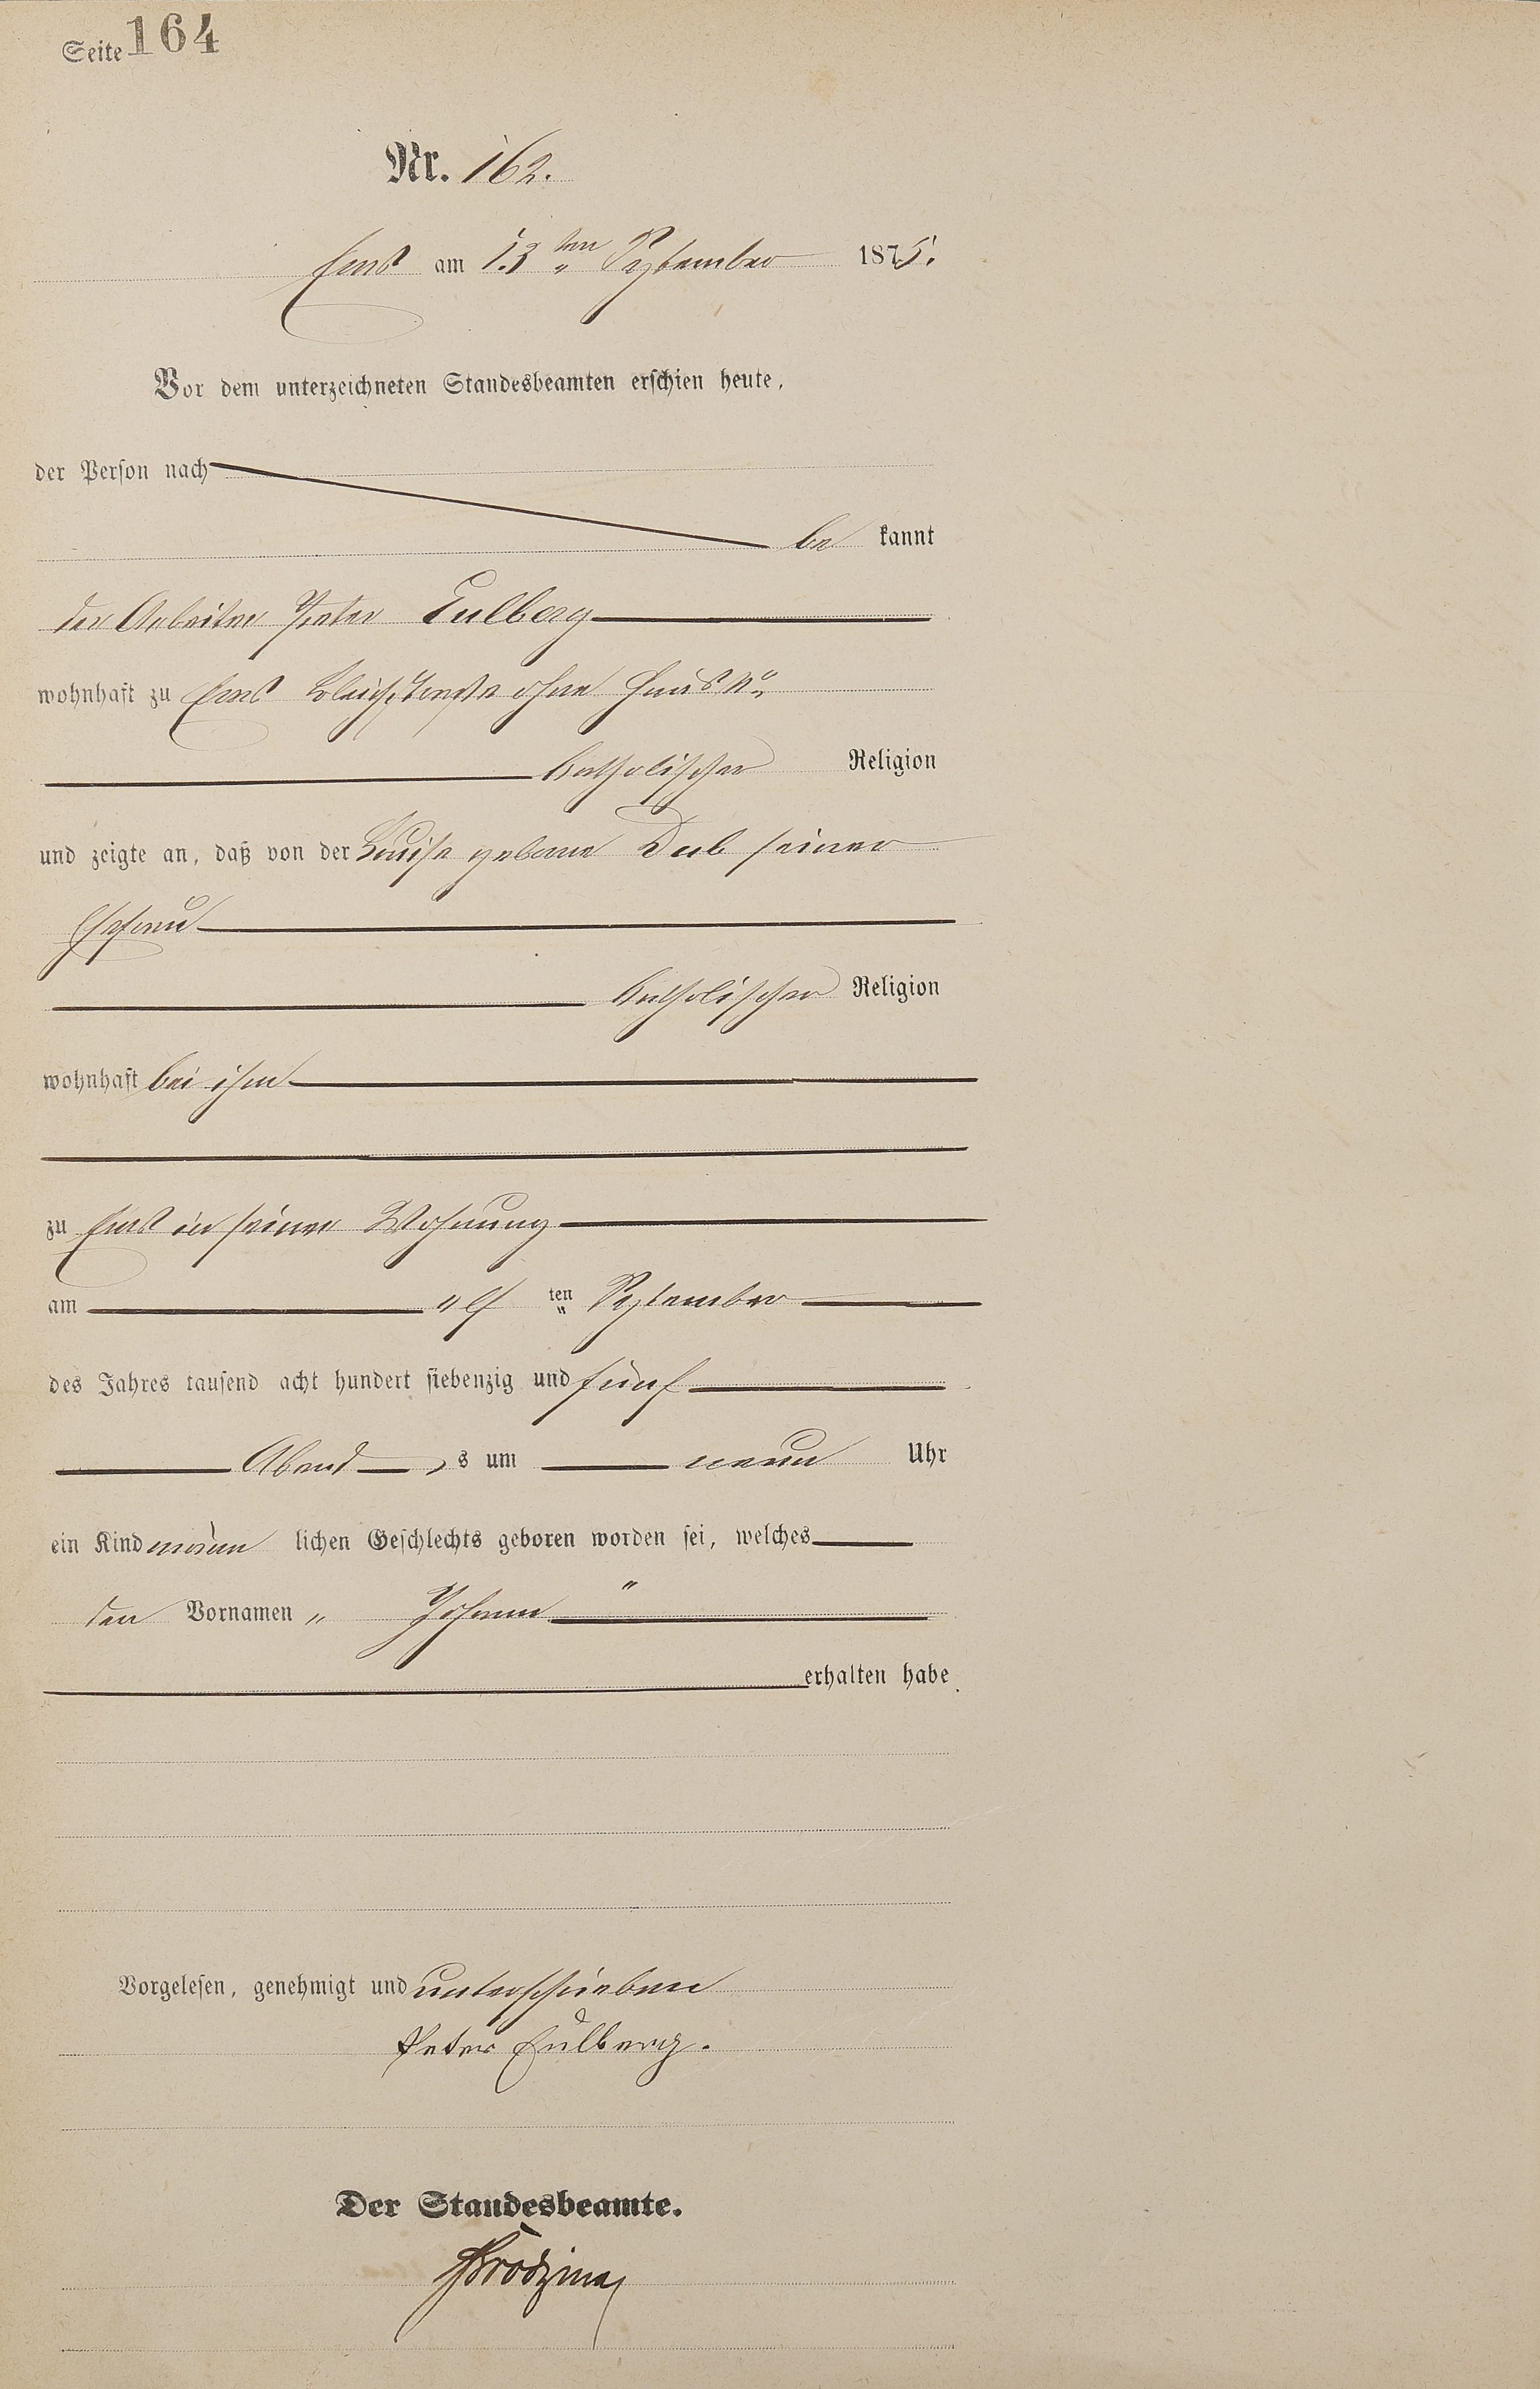 Seite 164
Nr. 162.
Ems am 13ten September 1875.
Vor dem unterzeichneten Standesbeamten erschien heute,
der Person nach
be kannt
der Arbeiter Peter Eulberg
wohnhaft zu Ems Bleichstraße ohne Haus No
katholischer Religion
und zeigte an, daß von der Louise geborne Dub seiner
Ehefrau
katholischer Religion
wohnhaft bei ihm
zu Ems in seiner Wohnung
am elf ten September
des Jahres tausend acht hundert siebenzig und fünf
Abend s um neun Uhr
ein Kind männ lichen Geschlechts geboren worden sei, welches
den Vornamen „ Johann "
erhalten habe
Vorgelesen, genehmigt und unterschrieben
Peter Eulberg.
Der Standesbeamte.